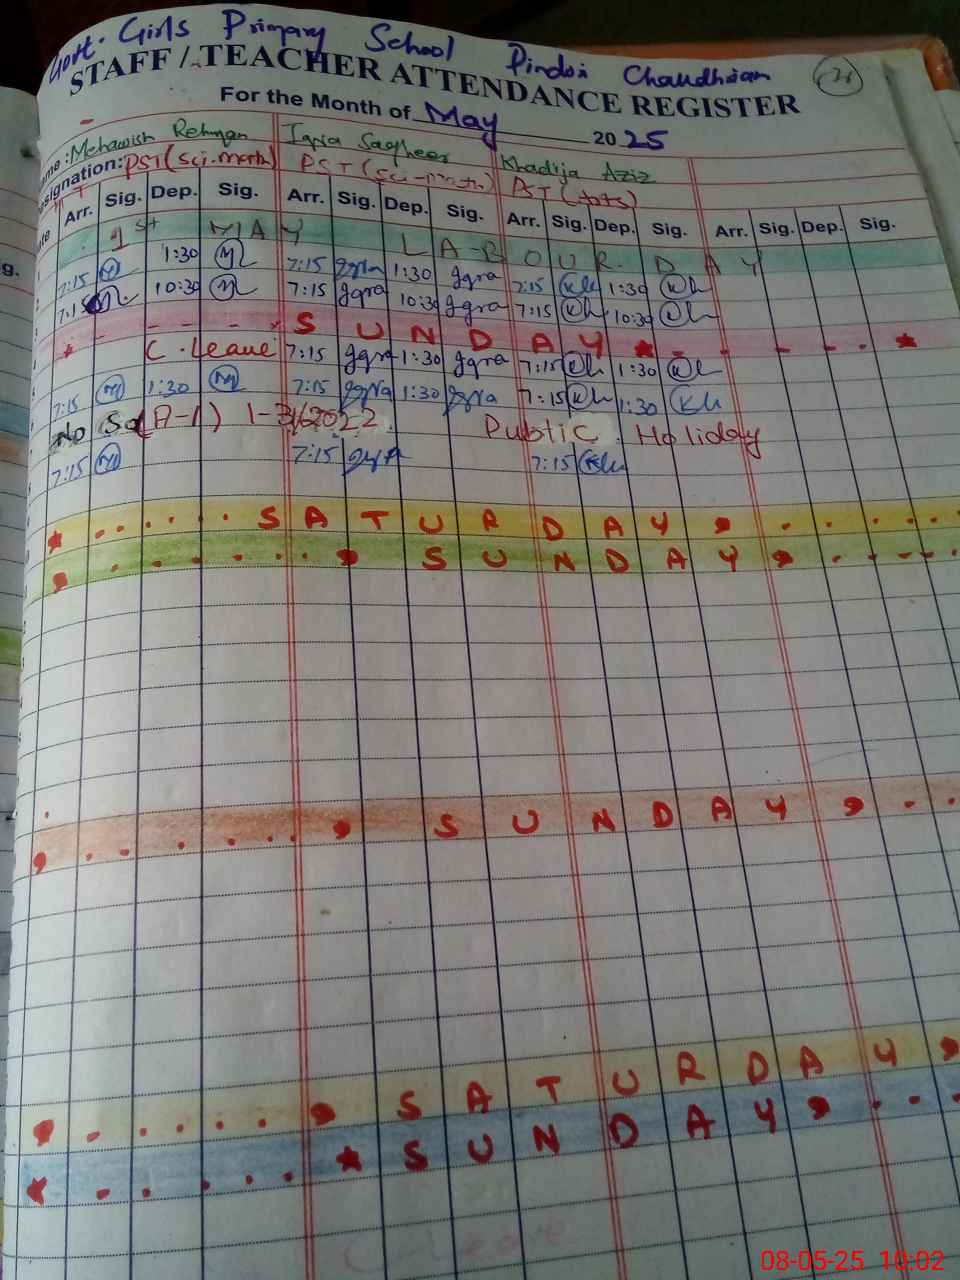 Govt. Girls Primary School Pindori Chaudhrian
26
STAFF / TEACHER ATTENDANCE REGISTER
For the Month of May 2025
Name: Mehawish Rehman Iqra Sagheer Khadija Aziz
Designation: PST (sci.math) PST (sci-math) PST (Arts)
Arr. Sig. Dep. Sig. Arr. Sig. Dep. Sig. Arr. Sig. Dep. Sig. Arr. Sig. Dep. Sig.
1st MAY LABOUR DAY
7:15 M 1:30 M 7:15 Iqra 1:30 Iqra 7:15 Kh 1:30 Kh
7:15 M 10:30 M 7:15 Iqra 10:30 Iqra 7:15 Kh 10:30 Kh
SUNDAY
C. Leave 7:15 Iqra 1:30 Iqra 7:15 Kh 1:30 Kh
7:15 M 1:30 M 7:15 Iqra 1:30 Iqra 7:15 Kh 1:30 Kh
No So(A-1) 1-3/2022 Public Holiday
7:15 M 7:15 Iqra 7:15 Kh
SATURDAY
SUNDAY
SUNDAY
SATURDAY
SUNDAY
C-Leave
08-05-25 10:02